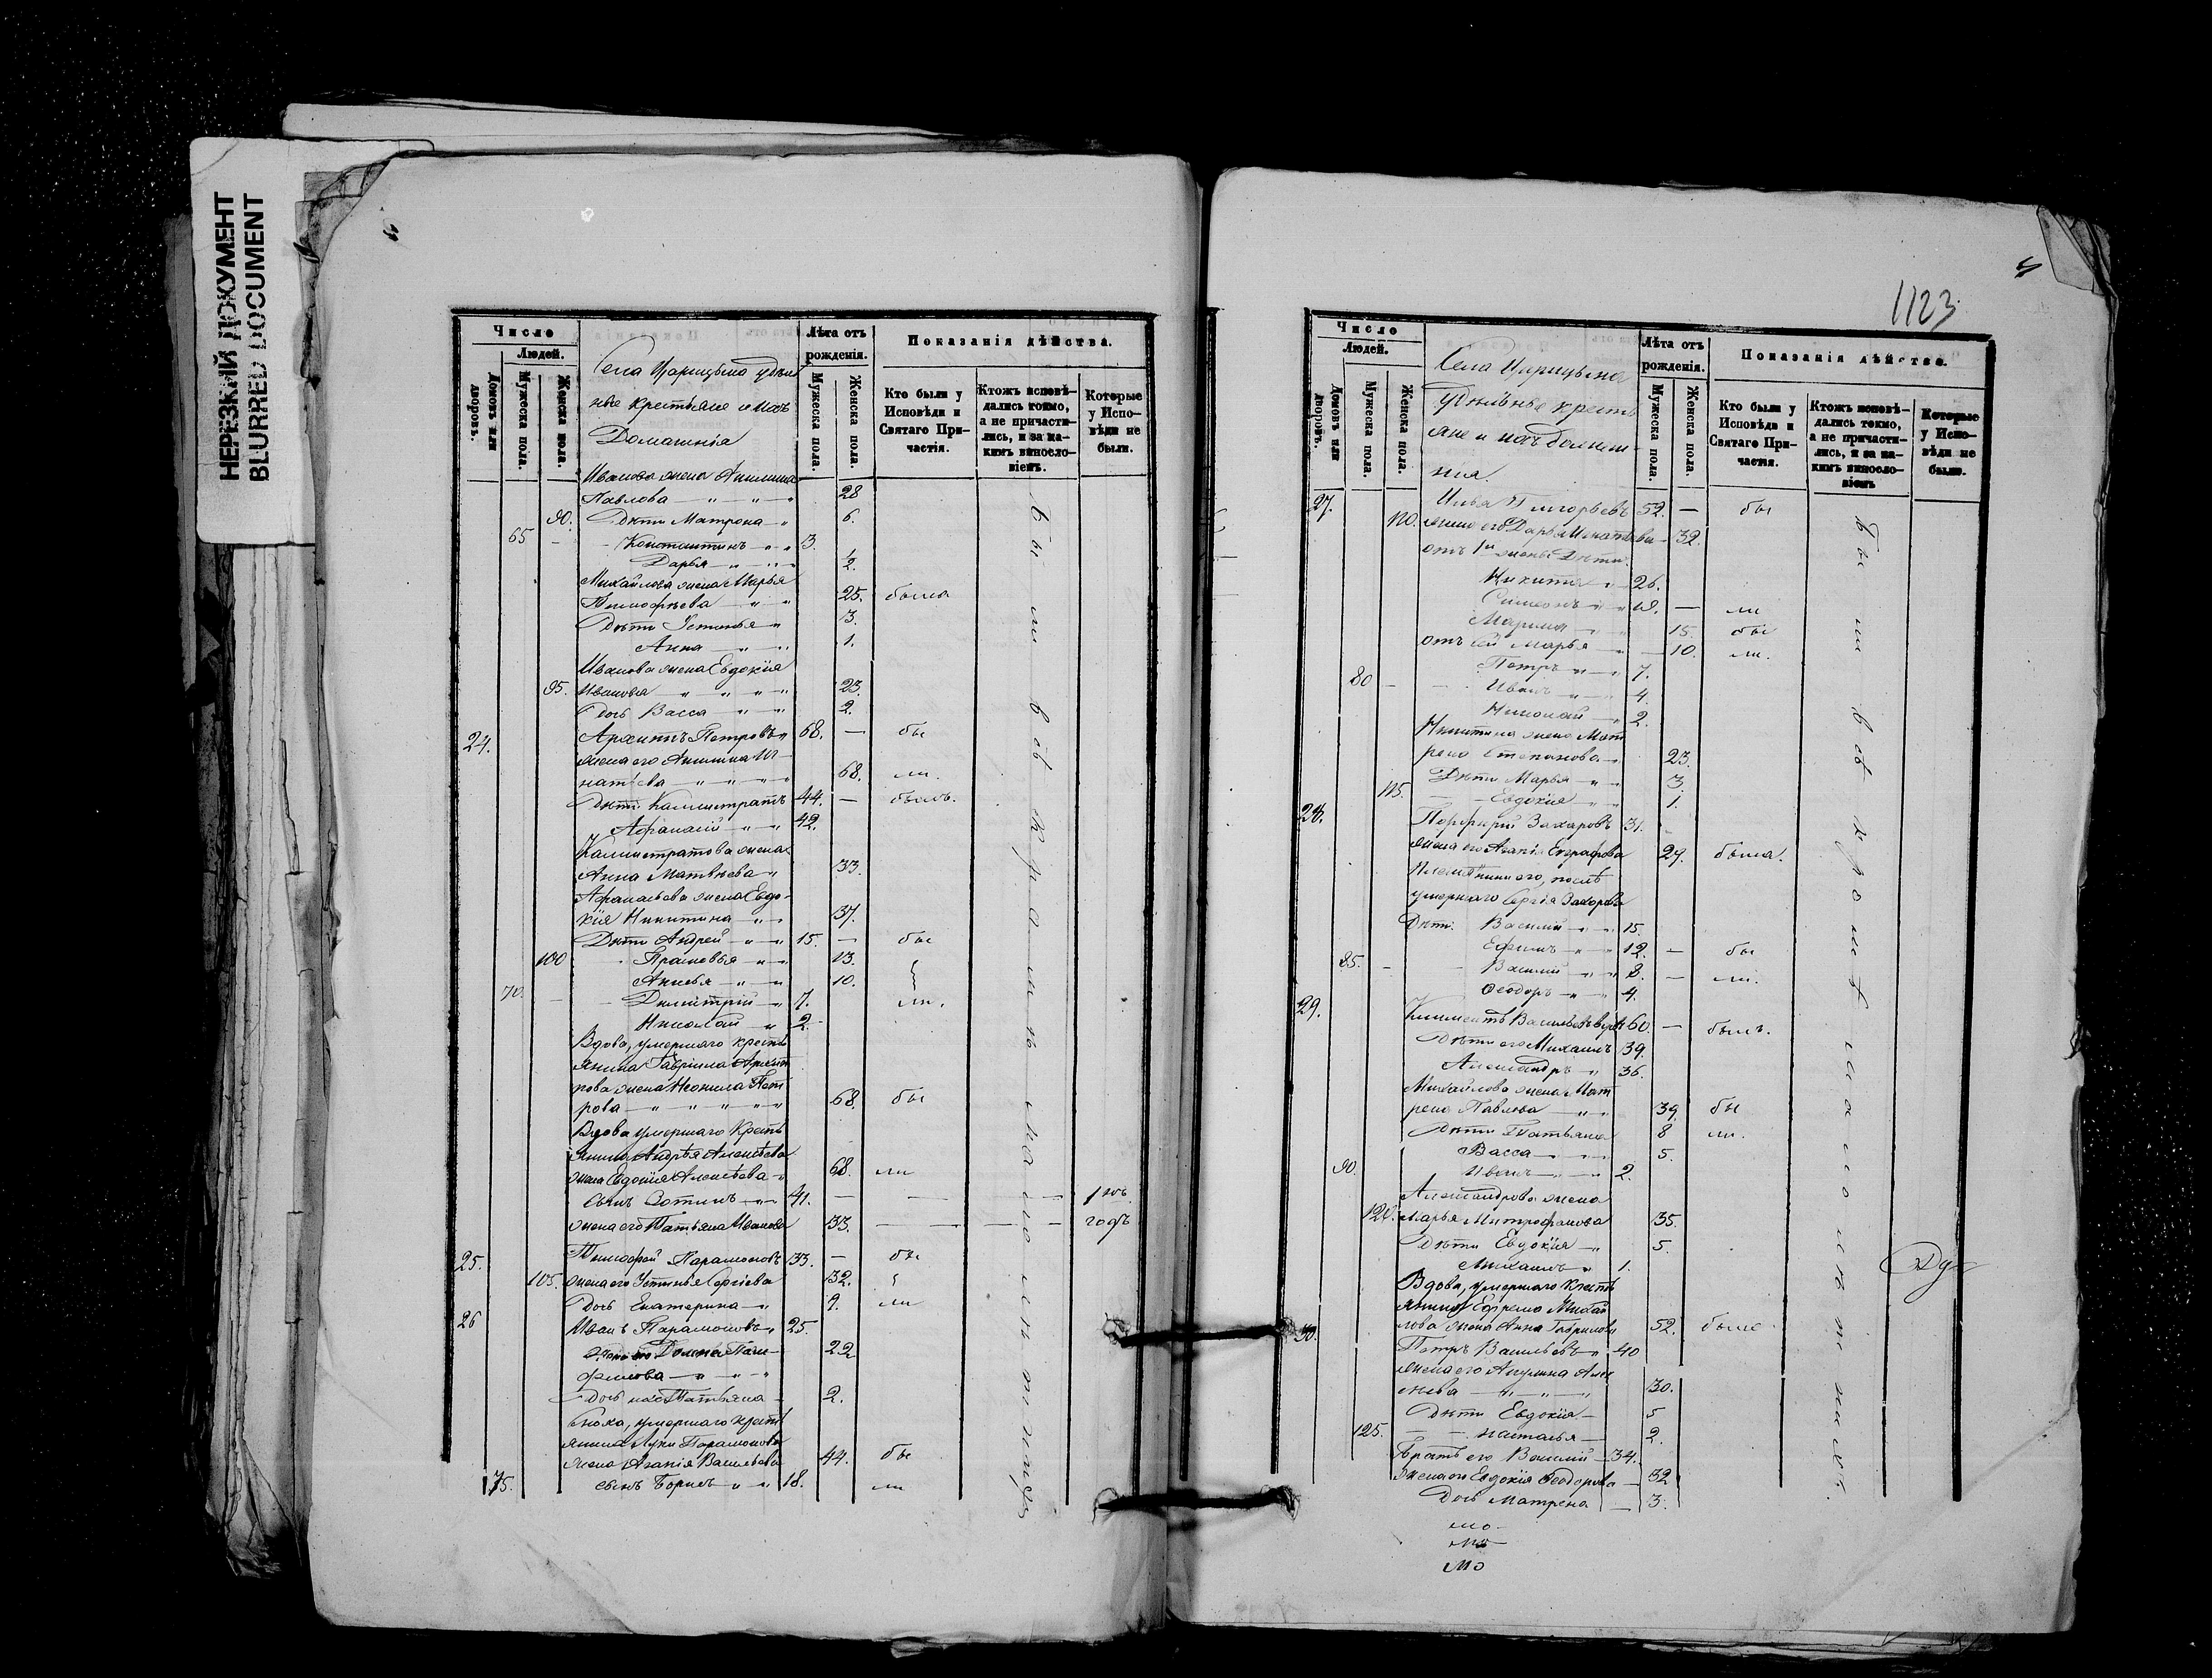 НЕРЕЗКИЙ ДОКУМЕНТ
BLURRED DOCUMENT
Число
Людей.
Домовъ или дворовъ.
Мужеска пола.
Женска пола.
Села Царицына удѣль
ные крестьяне и ихъ
Домашнія
Лѣта отъ рожденія.
Мужеска пола.
Женска пола.
Показанія дѣйства.
Кто были у Исповѣди и Святаго Причастія.
Ктожъ исповѣдались токмо, а не причастились, и за какимъ винословіемъ.
Которые у Исповѣди не были.
Иванова жена Акилина
Павлова 28
90. Дѣти Матрона 6.
65 Константинъ 3.
Дарья 2.
Михайлова жена Марья
Тимофѣева 25. была
Дѣти Устинья 3.
Анна 1.
Иванова жена Евдокія
95. Иванова 23.
Дочь Васса 2.
24. Архиппъ Петровъ 68. — бы
жена его Акилина Иг
натьева 68. ли.
Дѣти Каллистратъ 44. — былъ.
Афанасій 42.
Каллистратова жена
Анна Матвѣева 33.
Афанасьева жена Евдо-
кія Никитина 37.
Дѣти Андрей 15. — бы
100 Прасковья 13.
Анисья 10.
70. Димитрій 7. ли.
Николай 2.
Вдова, умершаго кресть
янина Гавріила Архип
пова жена Неонила Пет
рова 68. бы
Вдова умершаго Кресть
янина Андрея Алексѣева
жена Евдокія Алексѣева 68. ли
сынъ Зотикъ 41. — —
жена его Татьяна Иванова 33. — — годъ
25. Тимофей Парамоновъ 33. — бы
105. жена его Устинья Сергіева 32.
Дочь Екатерина 9. ли
26 Иванъ Парамоновъ 25.
жена его Домна Пам-
филова 22
Дочь ихъ Татьяна 2.
Сноха, умершаго кресть
янина Луки Парамонова
жена Агапія Васильева 44. бы
75. сынъ Борисъ 18. ли
1123
Число
Людей.
Домовъ или дворовъ.
Мужеска пола.
Женска пола.
Села Царицына
Удѣльные кресть
яне и ихъ домаш-
нія.
Лѣта отъ рожденія.
Мужеска пола.
Женска пола.
Показанія дѣйства.
Кто были у Исповѣди и Святаго Причастія.
Ктожъ исповѣдались токмо, а не причастились, и за какимъ винословіемъ
Которые у Исповѣди не были.
27. Илья Григорьевъ 52. — бы
110. жена его Дарья Игнатьева 32.
отъ 1й жены Дѣти.
Никита 26.
Симеонъ 18. — ли
Марина 15. бы
отъ сей Марья 10. ли.
Петръ 7.
80 Иванъ 4.
Николай 2.
Никитина жена Мат
рена Степанова 23.
Дѣти Марья 3.
115. Евдокія 1.
28. Порфирій Захаровъ 31.
жена его Агапія Евграфова 29. была.
Племянники его, послѣ
умершаго Сергія Захарова
Дѣти. Василій 15.
Ефимъ 12. — бы
85. Василій 8. — ли.
Ѳеодоръ 4.
29. Климентъ Васильевъ 60. — былъ.
Дѣти его Михаилъ 39.
Александръ 36.
Михайлова жена Мат
рена Павлова 39. бы
Дѣти Татьяна 8 ли.
Васса 5.
90. Иванъ 2.
Александрова жена
120. Марья Митрофанова 35.
Дѣти Евдокія 5.
Михаилъ 1.
Вдова, умершаго кресть
янина Ефрема Михай
лова жена Анна Гаврилова 52. была
30. Петръ Васильевъ 40
жена его Акулина Алек
сѣева 30.
Дѣти Евдокія 5
125. Наталья 2.
Братъ его Василій 34.
жена его Евдокія Ѳеодорова 32
Дочь Матрена 3.
мо
мо
мо